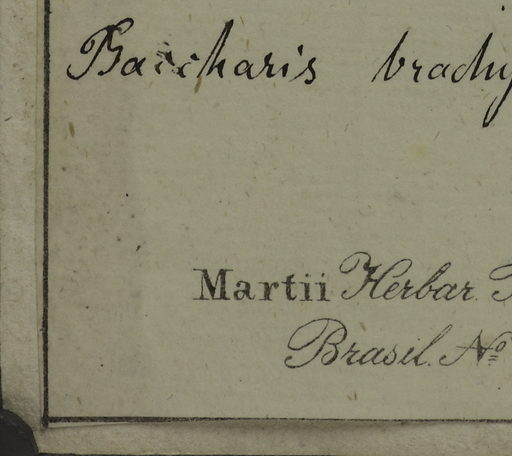 Baccharis brachy
Martii Herbar.
Brasil. Nº